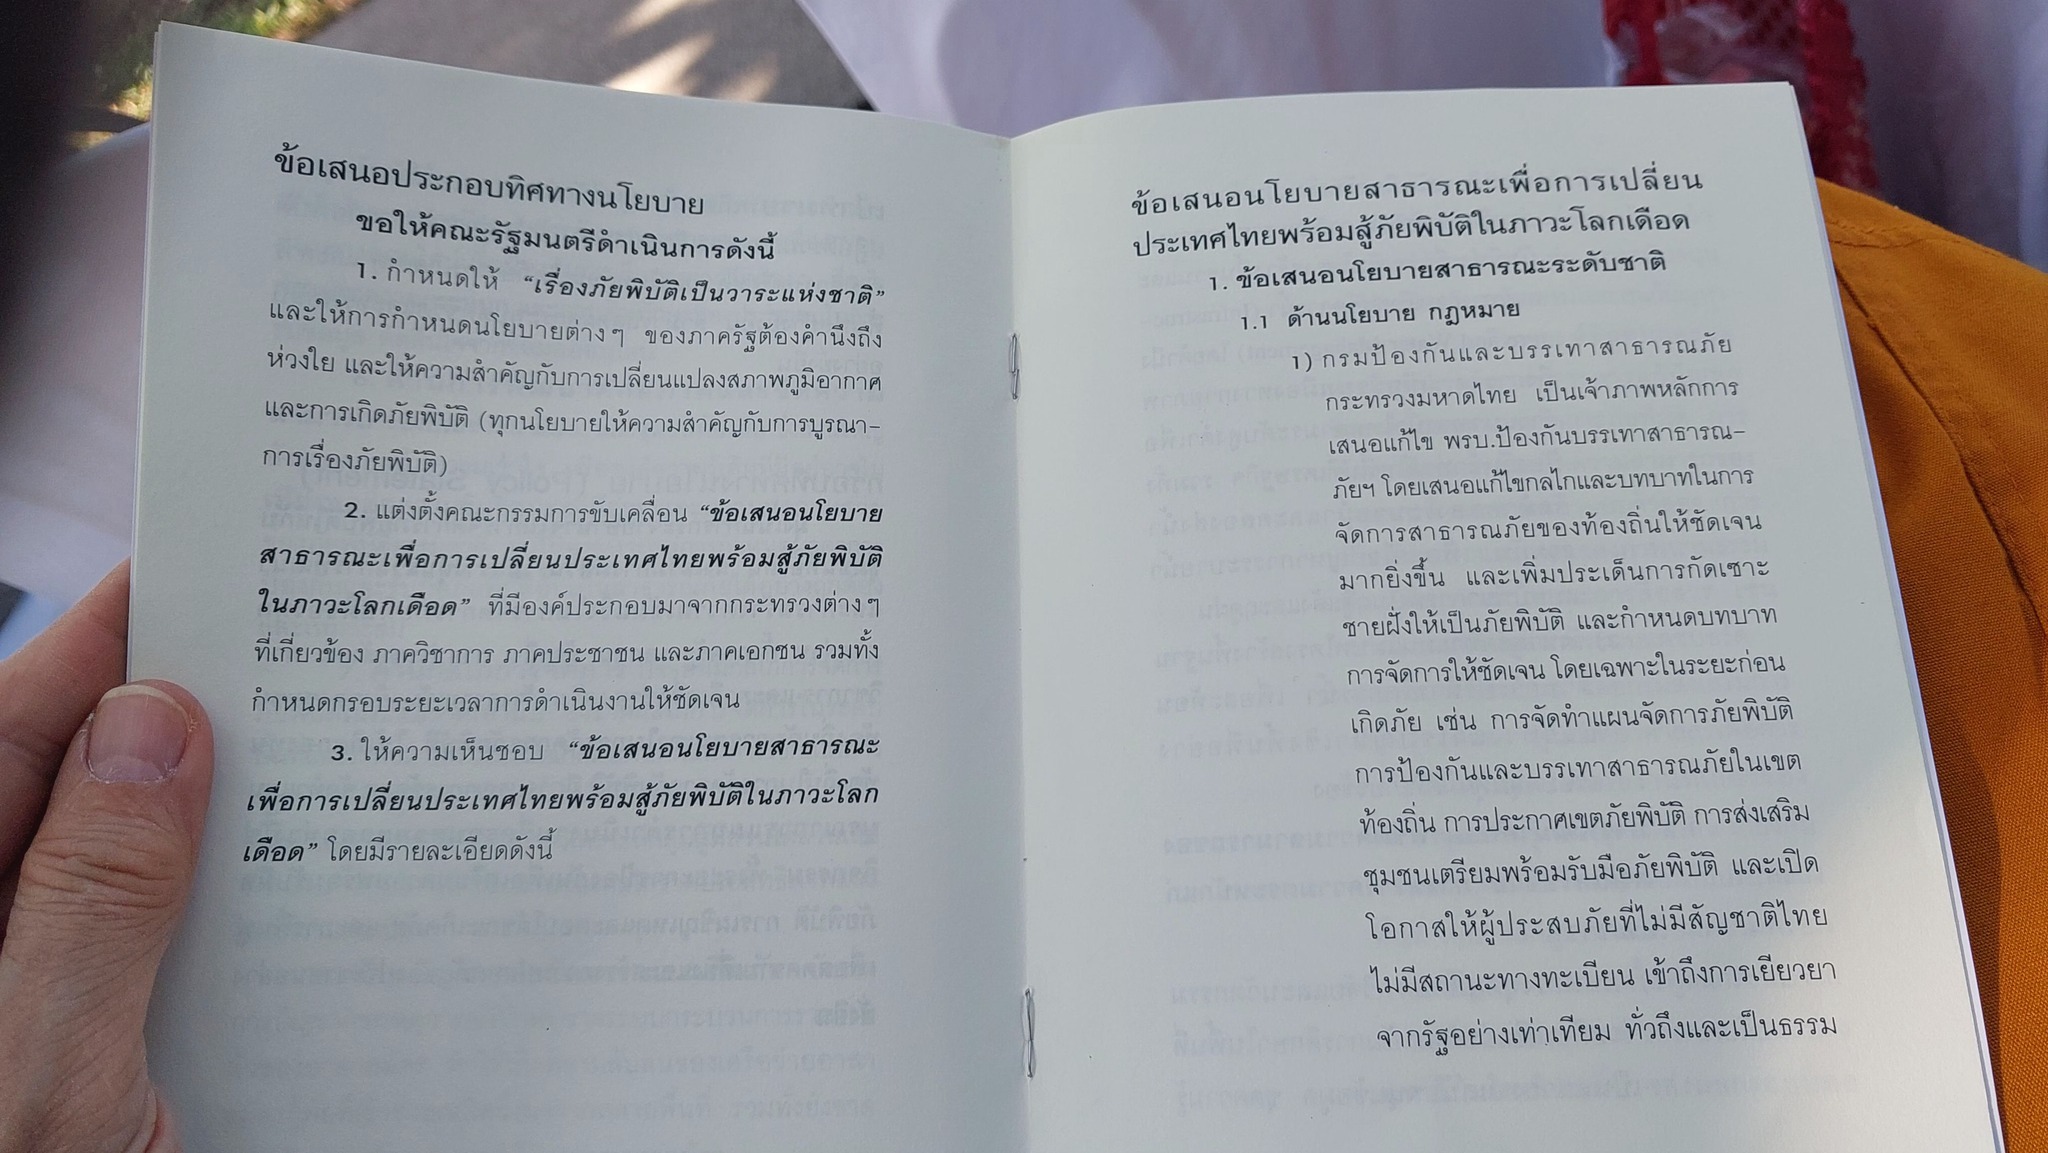 ข้อเสนอประกอบทิศทางนโยบาย
ขอให้คณะรัฐมนตรีดำเนินการดังนี้
1. กำหนดให้ “เรื่องภัยพิบัติเป็นวาระแห่งชาติ”
และให้การกำหนดนโยบายต่างๆ ของภาครัฐต้องคำนึงถึง
ห่วงใย และให้ความสำคัญกับการเปลี่ยนแปลงสภาพภูมิอากาศ
และการเกิดภัยพิบัติ (ทุกนโยบายให้ความสำคัญกับการบูรณา-
การเรื่องภัยพิบัติ)
2. แต่งตั้งคณะกรรมการขับเคลื่อน “ข้อเสนอนโยบาย
สาธารณะเพื่อการเปลี่ยนประเทศไทยพร้อมสู้ภัยพิบัติ
ในภาวะโลกเดือด” ที่มีองค์ประกอบมาจากกระทรวงต่างๆ
ที่เกี่ยวข้อง ภาควิชาการ ภาคประชาชน และภาคเอกชน รวมทั้ง
กำหนดกรอบระยะเวลาการดำเนินงานให้ชัดเจน
3. ให้ความเห็นชอบ “ข้อเสนอนโยบายสาธารณะ
เพื่อการเปลี่ยนประเทศไทยพร้อมสู้ภัยพิบัติในภาวะโลก
เดือด” โดยมีรายละเอียดดังนี้
ข้อเสนอนโยบายสาธารณะเพื่อการเปลี่ยน
ประเทศไทยพร้อมสู้ภัยพิบัติในภาวะโลกเดือด
1. ข้อเสนอนโยบายสาธารณะระดับชาติ
1.1 ด้านนโยบาย กฎหมาย
1) กรมป้องกันและบรรเทาสาธารณภัย
กระทรวงมหาดไทย เป็นเจ้าภาพหลักการ
เสนอแก้ไข พรบ.ป้องกันบรรเทาสาธารณ-
ภัยฯ โดยเสนอแก้ไขกลไกและบทบาทในการ
จัดการสาธารณภัยของท้องถิ่นให้ชัดเจน
มากยิ่งขึ้น และเพิ่มประเด็นการกัดเซาะ
ชายฝั่งให้เป็นภัยพิบัติ และกำหนดบทบาท
การจัดการให้ชัดเจน โดยเฉพาะในระยะก่อน
เกิดภัย เช่น การจัดทำแผนจัดการภัยพิบัติ
การป้องกันและบรรเทาสาธารณภัยในเขต
ท้องถิ่น การประกาศเขตภัยพิบัติ การส่งเสริม
ชุมชนเตรียมพร้อมรับมือภัยพิบัติ และเปิด
โอกาสให้ผู้ประสบภัยที่ไม่มีสัญชาติไทย
ไม่มีสถานะทางทะเบียน เข้าถึงการเยียวยา
จากรัฐอย่างเท่าเทียม ทั่วถึงและเป็นธรรม